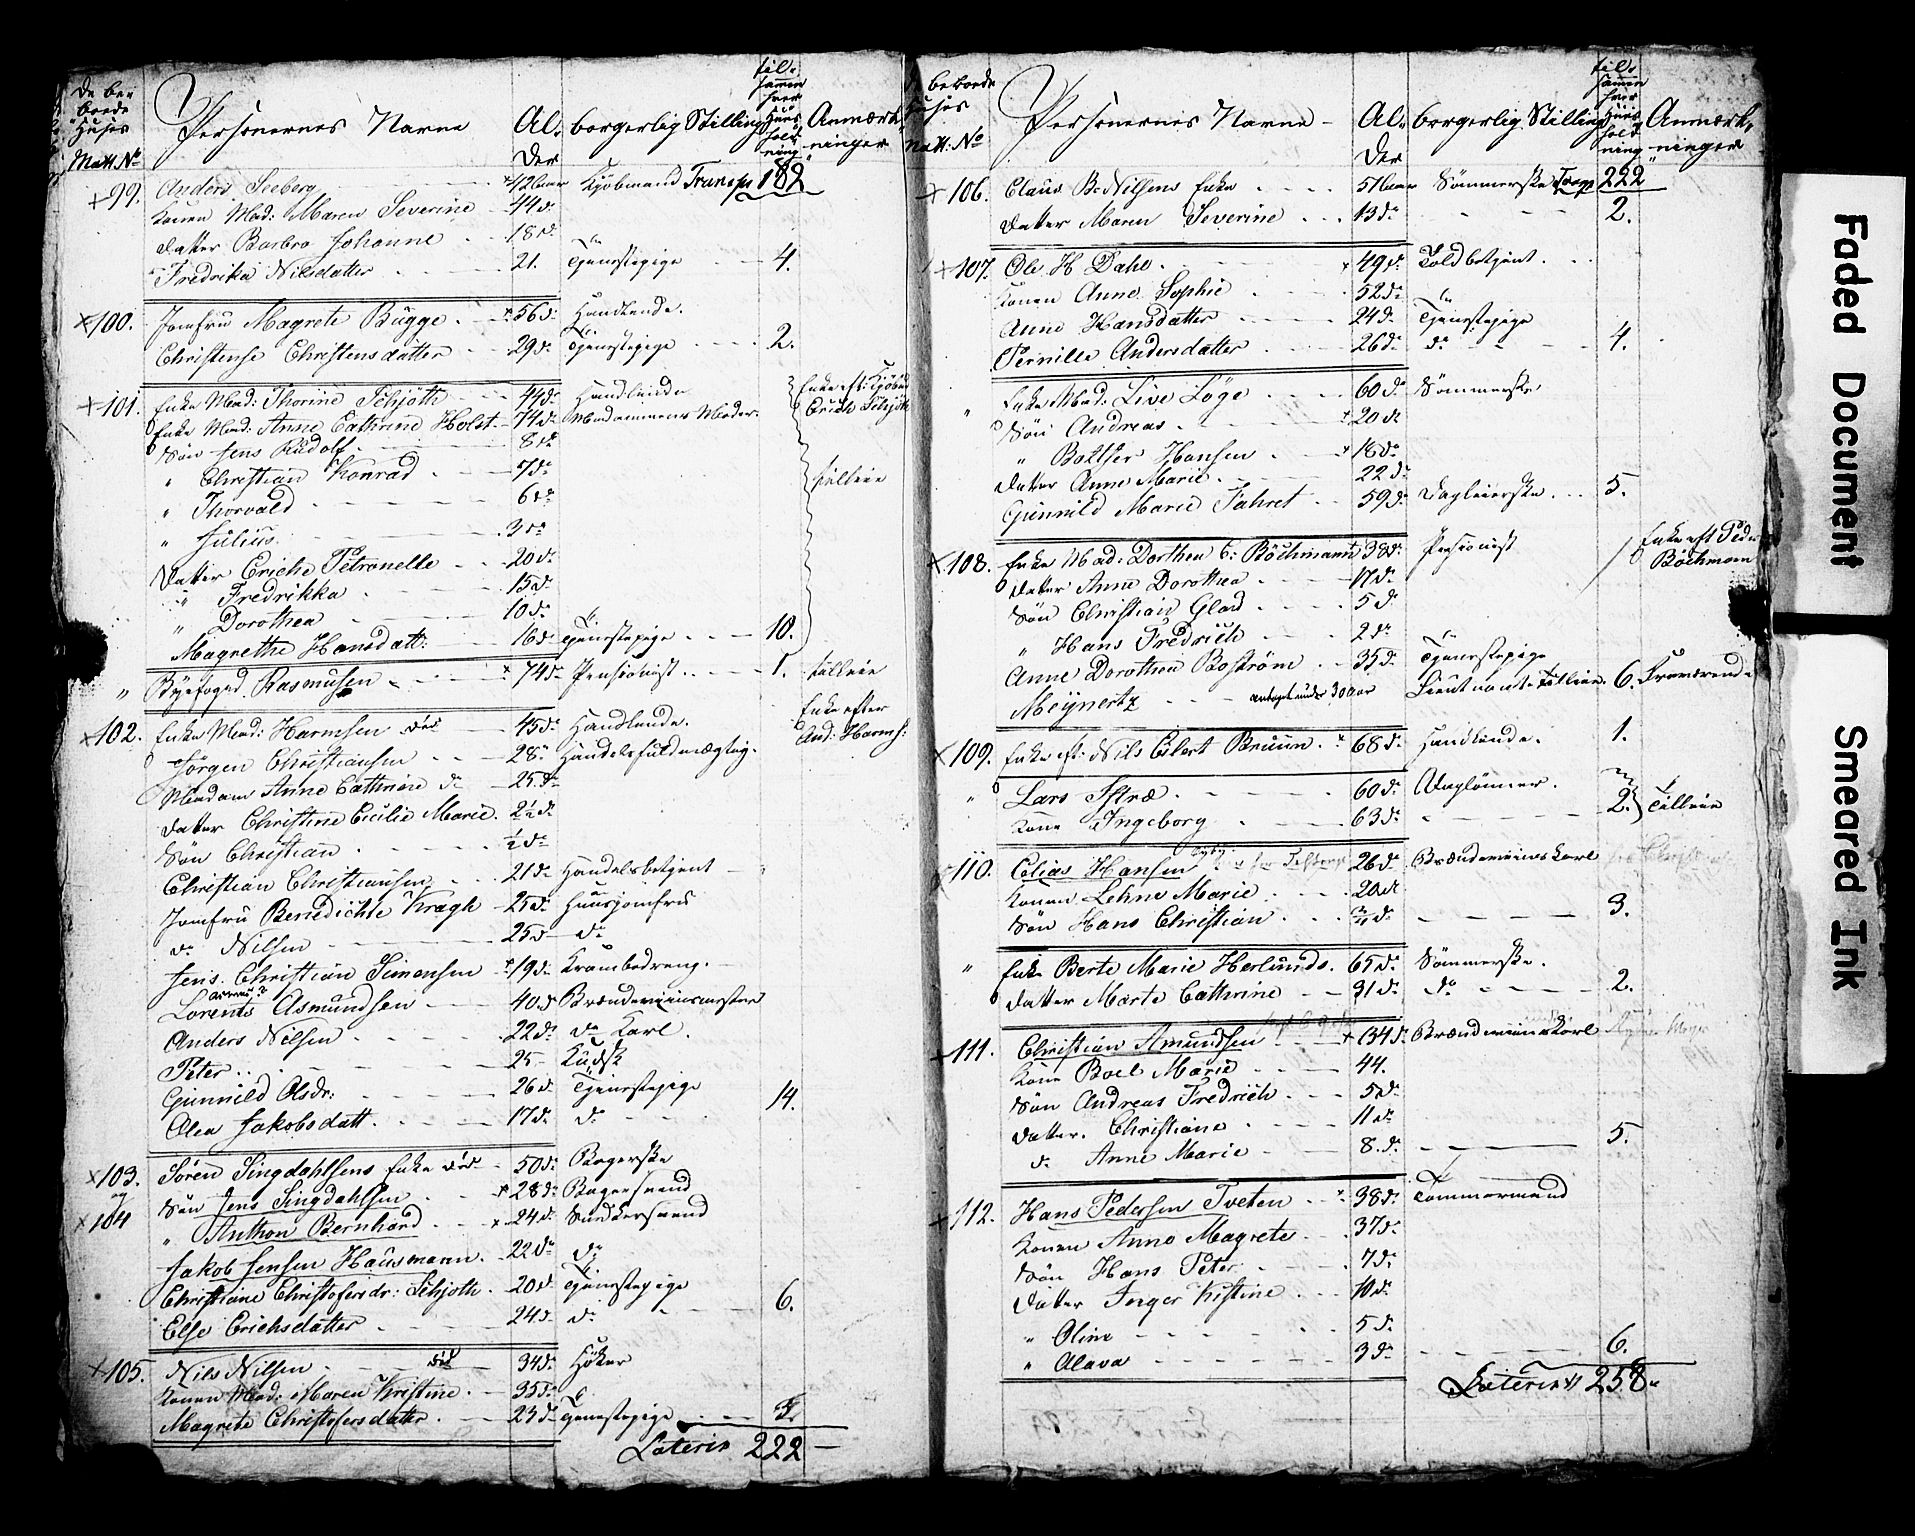 De be-
boede
Huses
Matt. No
Personernes Navne
Al-
der
borgerlig Stilling
til-
sammen
hver
Huus
hold
ning
Anmærk-
ninger
99. Anders Seeberg 42 aar Kjøbmand Transp 182
Konen Mad: Maren Severine 44 do
Datter Barbro Johanne 18 do
Fredrika Nilsdatter 21. Tjenestepige 4.
100. Jomfru Magrete Bugge 56 do Handlende.
Christense Christensdatter 29 do Tjenestepige 2.
101. Enke Mad: Thorine Schjøth 44 do Handlende Enke eft: Kjøbm
Enke Mad: Anne Cathrine Holst 74 do Madammens Moder. Erich Schjøth
Søn Jens Rudolf 8 do
" Christian Konrad 7 do tilleie
" Thorvald 6 do
" Julius 3 do
Datter Eriche Petronelle 20 do
" Fredrikka 15 do
" Dorothea 10 do
Magrethe Hansdatt: 16 do Tjenestepige 10.
" Byefoged Rasmusen 74 do Pensionist 1. tilleie
102. Enke Mad: Harmsen død 45 do Handlende. Enke efter
And: Harms:
Jørgen Christiansen 28 " Handelsfuldmægtig.
Madam Anne Cathrine do 25 do
Datter Christine Cicilie Marie. 2½ do
Søn Christian ½ do
Christian Christiansen 21 do Handelsbetjent
Jomfru Benedichte Kragh 25 do Huusjomfru
do Nilsen 25 do do
Jens Christian Simonsen 19 do Krambodreng.
Lorents Asmundsen 40 do Brændeviinsmester
Anders Nilsen 22 do do Karl.
Peter 25 Kudsk
Gunnild Olsdr: 26 do Tjenestepige
Alea Jakobsdatt. 17 do do 14.
103. Søren Lingdahlsens Enke død 50 do Bagerske
og Søn Jens Lingdahlsen 28 do Bagersvend
104 " Anthon Bernhard 24 do Snedkersvend
Jakob Jensen Hausmann. 22 do do
Christiane Christofersdr: Schjoth. 20 do Tjenestepige
Else Erichsdatter 24 do do 6.
105. Nils Nilsen død 34 do Høker
Konen Mad: Maren Kristine. 35 do
Magrete Christofersdatter. 23 do Tjenestepige 3.
Lateris 222
beboede
Huses
Matt: No
Personernes Navne
Al-
der
borgerlig Stilling
til-
sammen
hver
Huus
hold
ning
Anmærk-
ninger
106. Claus B. Nilsens Enke 51 aar Sømmerske Transp 222
Datter Maren Severine 13 do 2.
107. Ole H Dahl. 49 do Toldbetjent.
Konen Anne Sophie 52 do
Anne Hansdatter 24 do Tjenestepige
Pernille Andersdatter 26 do do 4.
" Enke Mad: Live Løge 60 do Sømmerske
Søn Andreas 20 do
" Boltser Hansen 18 do
Datter Anne Marie 22 do
Gunnild Marie Fahret 59 do Dagleierske 5.
108. Enke Mad: Dorthea C: Böchmann 38 do Pensionist Enke eft Peder
Böchmann
Datter Anne Dorothea 17 do
Søn Christian Glad 5 do
" Hans Fredrich 2 do
Anne Dorothea Boström 35 do Tjenestepige
Meÿnertz antaget under 30 aar Lieutnant tilleie. 6. Fraværende
109. Enke eft: Nils Eilert Bruun. 68 do Handlende. 1.
" Lars Istræ 60 do Daglønner.
Kone Ingeborg 63 do 2. Tilleie
110. Elias Hansen 26 do Brændeviinskarl
Konen Lehne Marie 20 do
Søn Hans Christian do 3.
" Enke Berte Marie Herlunds. 65 do Sømmerske.
Datter Marte Cathrine 31 do do 2.
111. Christian Amundsen 34 do Brændeviinskarl
Kone Boel Marie 44.
Søn Andreas Fredrich 5 do
Datter. Christiane 11 do
do Anne Marie 8. do 5.
112. Hans Pedersen Tveten 38 do Tømmermand
Konen Anne Magrete 37 do
Søn Hans Peter 7 do
Datter Inger Kistine 10 do
" Oline 5 do
" Alava 3 do 6.
Lateris 258
Faded Document
Smeared Ink